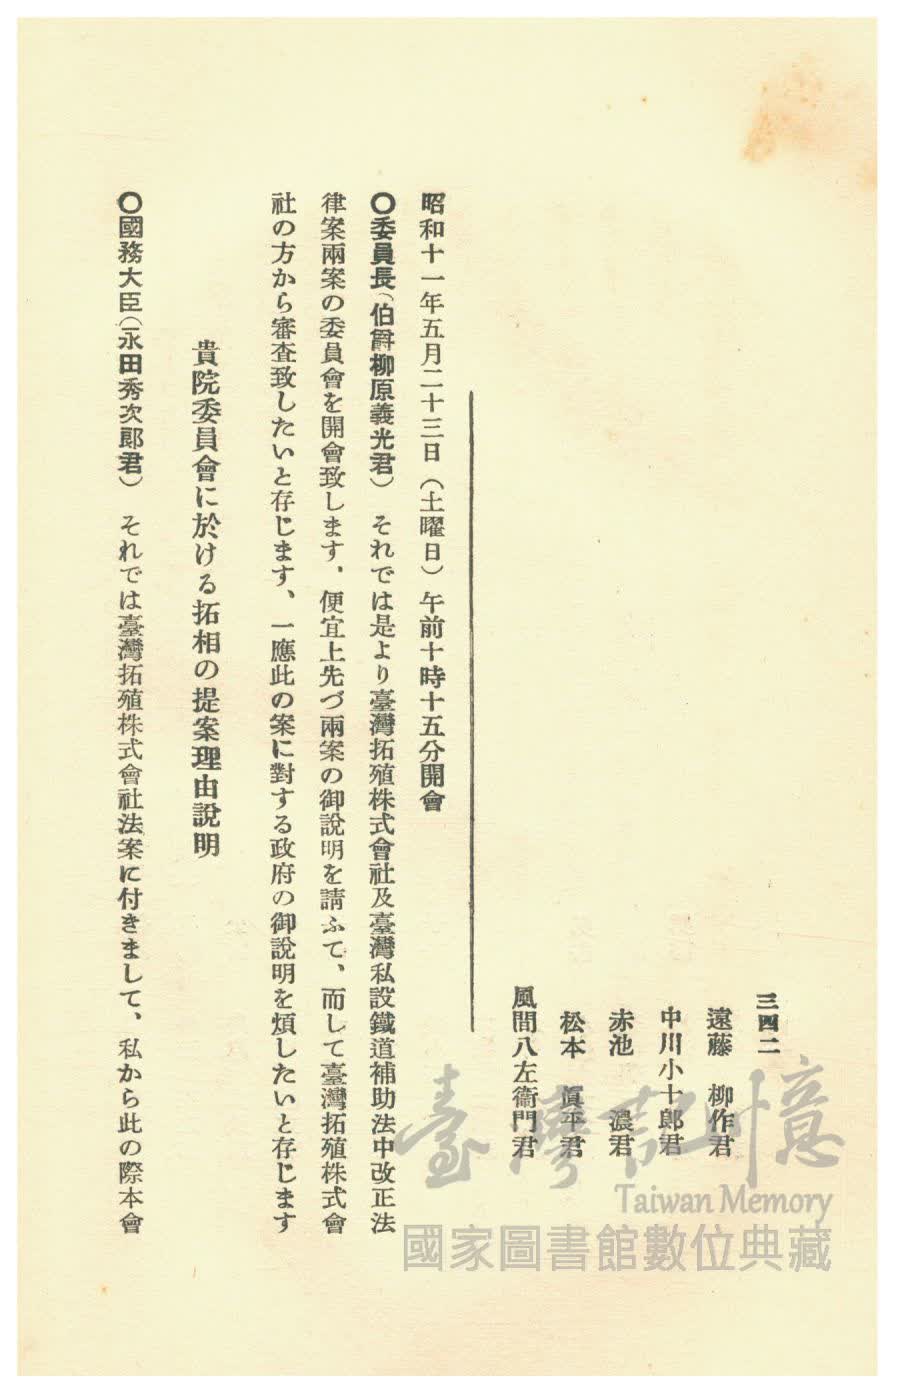 三四二
遠藤　柳作君
中川小十郎君
赤池　濃君
松本　眞平君
風間八左衞門君
昭和十一年五月二十三日（土曜日）午前十時十五分開會
〇委員長（伯爵柳原義光君）　それでは是より臺灣拓殖株式會社及臺灣私設鐵道補助法中改正法
律案兩案の委員會を開會致します、便宜上先づ兩案の御說明を請ふて、而して臺灣拓殖株式會
社の方から審査致したいと存じます、一應此の案に對する政府の御說明を煩したいと存じます
貴院委員會に於ける拓相の提案理由說明
〇國務大臣（永田秀次郞君）　それでは臺灣拓殖株式會社法案に付きまして、私から此の際本會
臺灣記憶
Taiwan Memory
國家圖書館數位典藏